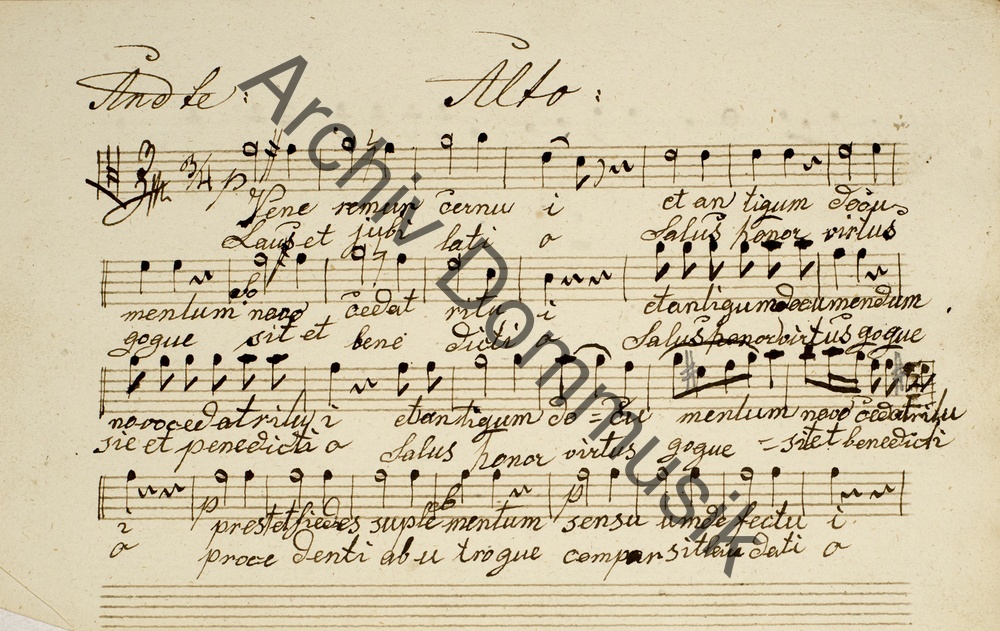 Andte: Alto:
3/4 p
Vene remur cernu i et an tigum docu-
Laus et jubi lati o Salus honor virtus
mentum novo cedat ritu i etantigumdocumendum
gogue sit et bene dicti o Salus honorvirtus gogue
novocedatritu i etantigum do = cu mentum novo cedatritu
sie et penedicti o Salus honor virtus gogue = sitet benedicti
i p prestetfiedes suplementum p sensu umdefectu i
o proce denti ab u trogue compar sitlau dati o
Archiv Dommusik